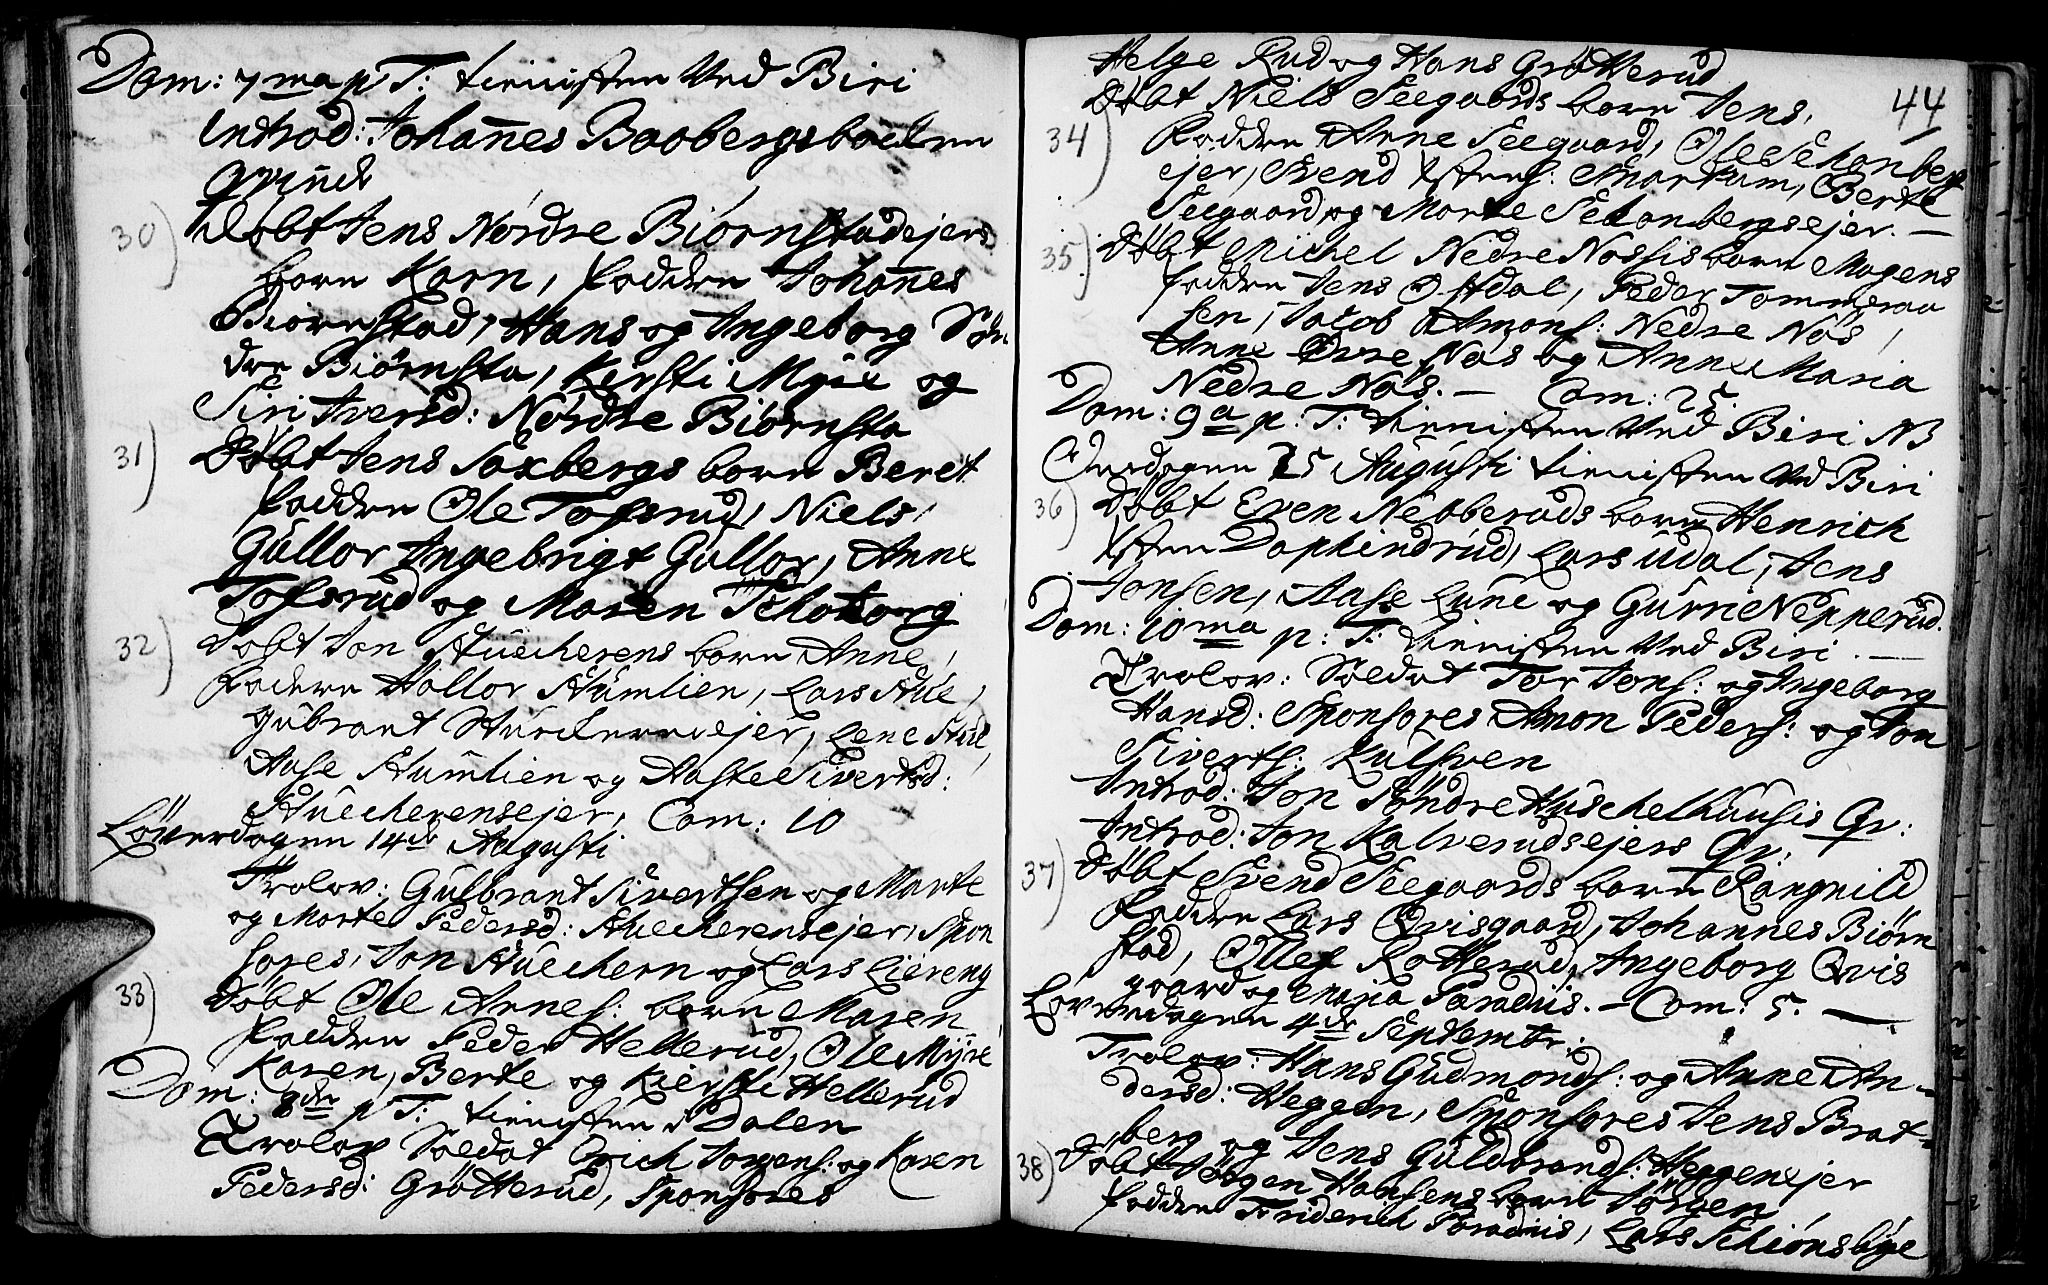 Dom: 7ma p T: tienisten Ved Biri
Introd: Johannes Baabergsbakken
Qvinde
30) Döbt Jens Nördre Biörnstadejers
barn Karn, fadder Johannes
Biörnstad, Hans og Ingeborg Sön
dre Biörnsta, Kersti Myre og
Siri Iversd: Nördre Biörnsta
31) Döbt Jens Saxbergs barn Beret
fadder Ole Tofsrud, Niels
Gullor Ingebrigt Gullor, Anne
Tofsrud og Maren
32) Döbt Jon Huecherens barn Anne,
Fadder Hallor Humlien, Lars Hue,
Gubrant ejer, Lene Hue,
Aase Humlien og Aaste Sivertsd:
Huecherensejer, Com: 10
Löverdagen 14de Augusti
Trolov: Gulbrant Sivertsen og Marte
og Marte Pedersd: Huecherensejer, Spon
sores, Jon Huechern og Lars Liereng
33) Döbt Ole Arnes: barn Maren
fadder Peder Hellerud, Ole Myre
Karen, Berte og Kiersti Hellerud
Dom: 8de p T: tienisten i Dalen
Trolov Soldat Erich Jorgens: og Karen
Pedersd: Grötterud, Sponsores
44
Helge Rud og Hans Grötterud
34) Döbt Niels Seegaards barn Jens,
Fadder Anne Seegaard, Ole Schonberg
ejer, Svend Ystens: Berte
Seegaard og Marte Schonbergsejer. —
35) Döbt Michel Nedre Nossis barn Magens
fadder Jens Ofsdal, Peder Tommeraa
sen, Jacob Amons: Nedre Nos,
Anne Övre Nos og Anne Maria
Nedre Nos. — Com: 25.
Dom: 9a p. T: tienisten Ved Biri NB
Onsdagen 25 Augusti tienisten Ved Biri
36) Döbt Even Nebberuds barn Henrich
Ysten Daphindrud, Lars Udal, Jens
Jonsen, Aase Lune og Gurrie Nepperud.
Dom: 10ma p: T: tienisten Ved Biri. —
Trolov: Soldat Tor Jons: og Ingeborg
Hansd: Sponsores Amon Peders: og Jon
Siverts: Kulsven
Introd: Jon Söndre Huschelhuusis Qv:
Introd: Jon Kalverudsejers Qv:
37) Döbt Svend Seegaards barn Rangnild
Fadder Lars Qvisgaard, Johannes Biörn
stad, Ollef Rotterud, Ingeborg Qvis
gaard og Maria Paradiis. — Com: 5. —
Löverdagen 4de Septembr:
Trolov: Hans Gudmonds: og Anne An-
dersd: Heggen, Sponsores Jens Brat-
berg og Jens Guldbrands: Heggenejer
38) Döbt Hansens barn Jörgen
fadder Friderich Paradiis, Lars Schiönsbye